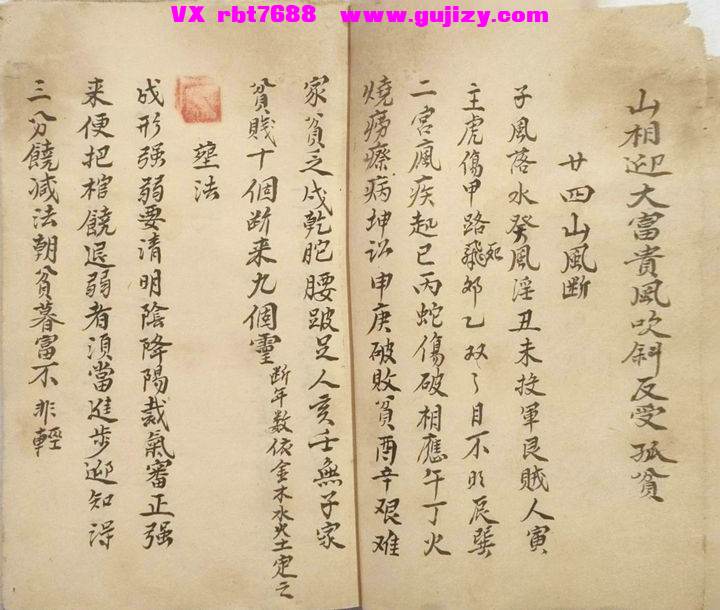 VX rbt7688 www.gujizy.com
山相迎大富貴風吹斜反受孤貧
廿四山風断
子風落水癸風淫丑未投軍艮賊人寅
主虎傷甲路死飛郊乙双々目不明辰巽
二宮瘋疾起巳丙蛇傷破相應午丁火
燒癆瘵病坤訟申庚破敗貧酉辛艰难
家貧乏戌乾跎腰跛足人亥壬無子家
貧賤十個断来九個靈断年数依金木水火土定之
塟法
成形强弱要清明陰降陽裁氣審正强
来便把棺饒退弱者須當進步迎知得
三分饒減法朝貧暮富不非輕